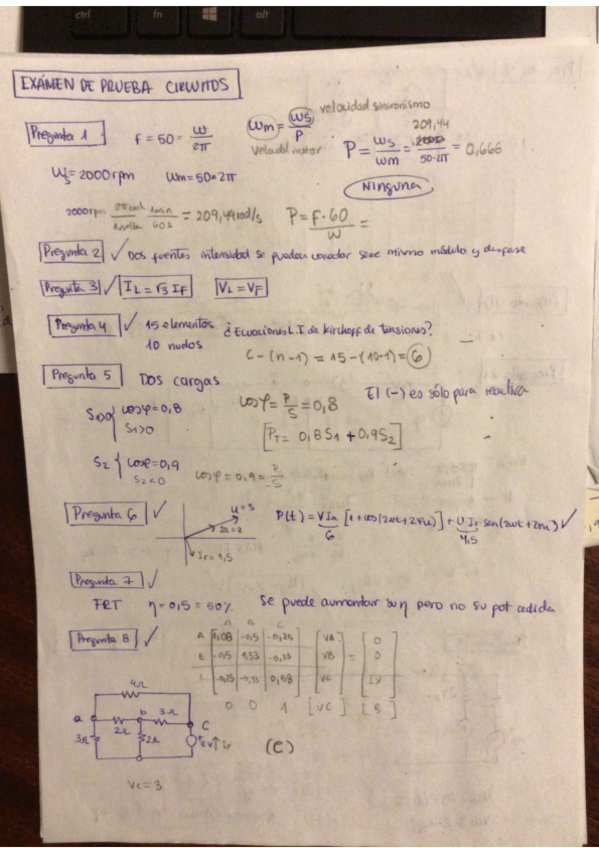 ctrl fn alt
EXÁMEN DE PRUEBA CIRCUITOS
Pregunta 1 f = 50 = w/2π Wm = Ws/P velocidad sincronismo
Velocidad motor P = Ws/Wm = 209,44/50·2π = 0,666
Ws = 2000 rpm Wm = 50·2π Ninguna
2000 rpm 2π rad/1 vuelta 1 min/60 s = 209,44 rad/s P = F·60/W =
Pregunta 2 ✓ Dos fuentes intensidad se pueden conectar si mismo módulo y desfase
Pregunta 3 ✓ IL = √3 IF VL = VF
Pregunta 4 ✓ 15 elementos ¿Ecuaciones L.I de Kirchoff de tensiones?
10 nudos C - (n-1) = 15 - (10-1) = 6
Pregunta 5 Dos cargas
cosφ = P/S = 0,8 El (-) es sólo para reactiva
cosφ = 0,8
S1>0
[PT = 0,8S1 + 0,9S2]
S2 { cosφ = 0,9 cosφ = 0,9 = P/-S
S2<0
Pregunta 6 ✓ U = 3 P(t) = VIa/6 [1 + cos(2wt + 2φu)] + U Ir/4,5 sen(2wt + 2φu) ✓
Ia = 2
Ir = 1,5
Pregunta 7 ✓
FRT η = 0,5 = 50% Se puede aumentar su η pero no su pot cedida
Pregunta 8 ✓ A B C
A 1,08 -0,5 -0,25 VA 0
B -0,5 1,33 -0,33 VB = 0
C -0,25 -0,33 0,58 VC IX
0 0 1 [VC] [3]
4Ω
a 2Ω b 3Ω C
3Ω 2Ω
(C)
Vc = 3